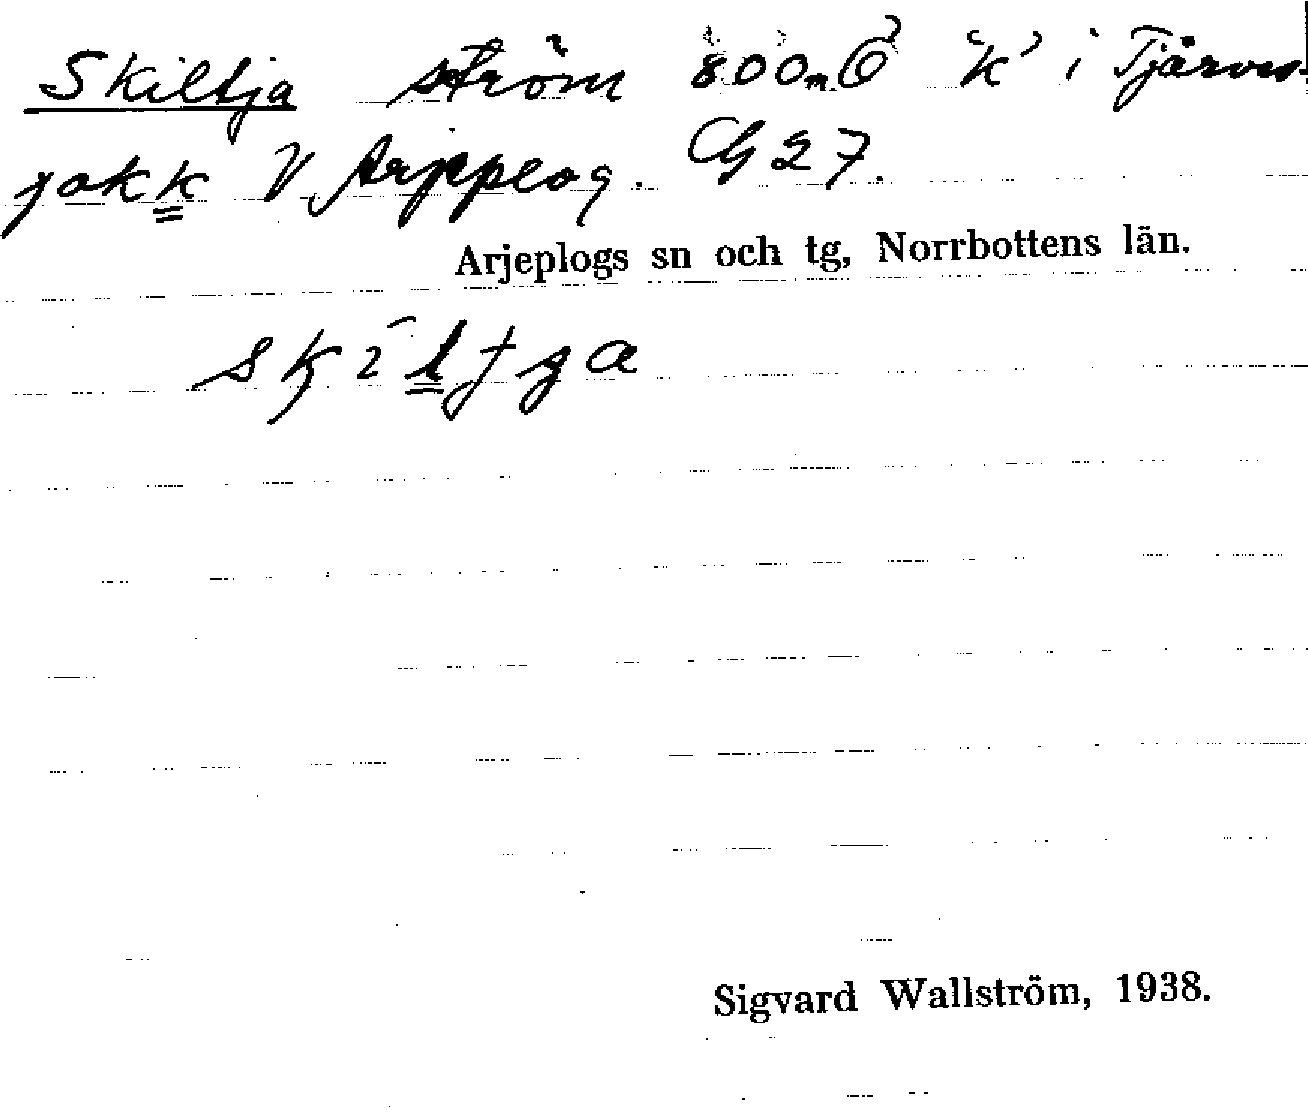 Skiltja ström 800m Ö 'k' i Tjärves-
jokk V Arjeplog. G 27.
Arjeplogs sn och tg, Norrbottens län.
skīltja
Sigvard Wallström, 1938.